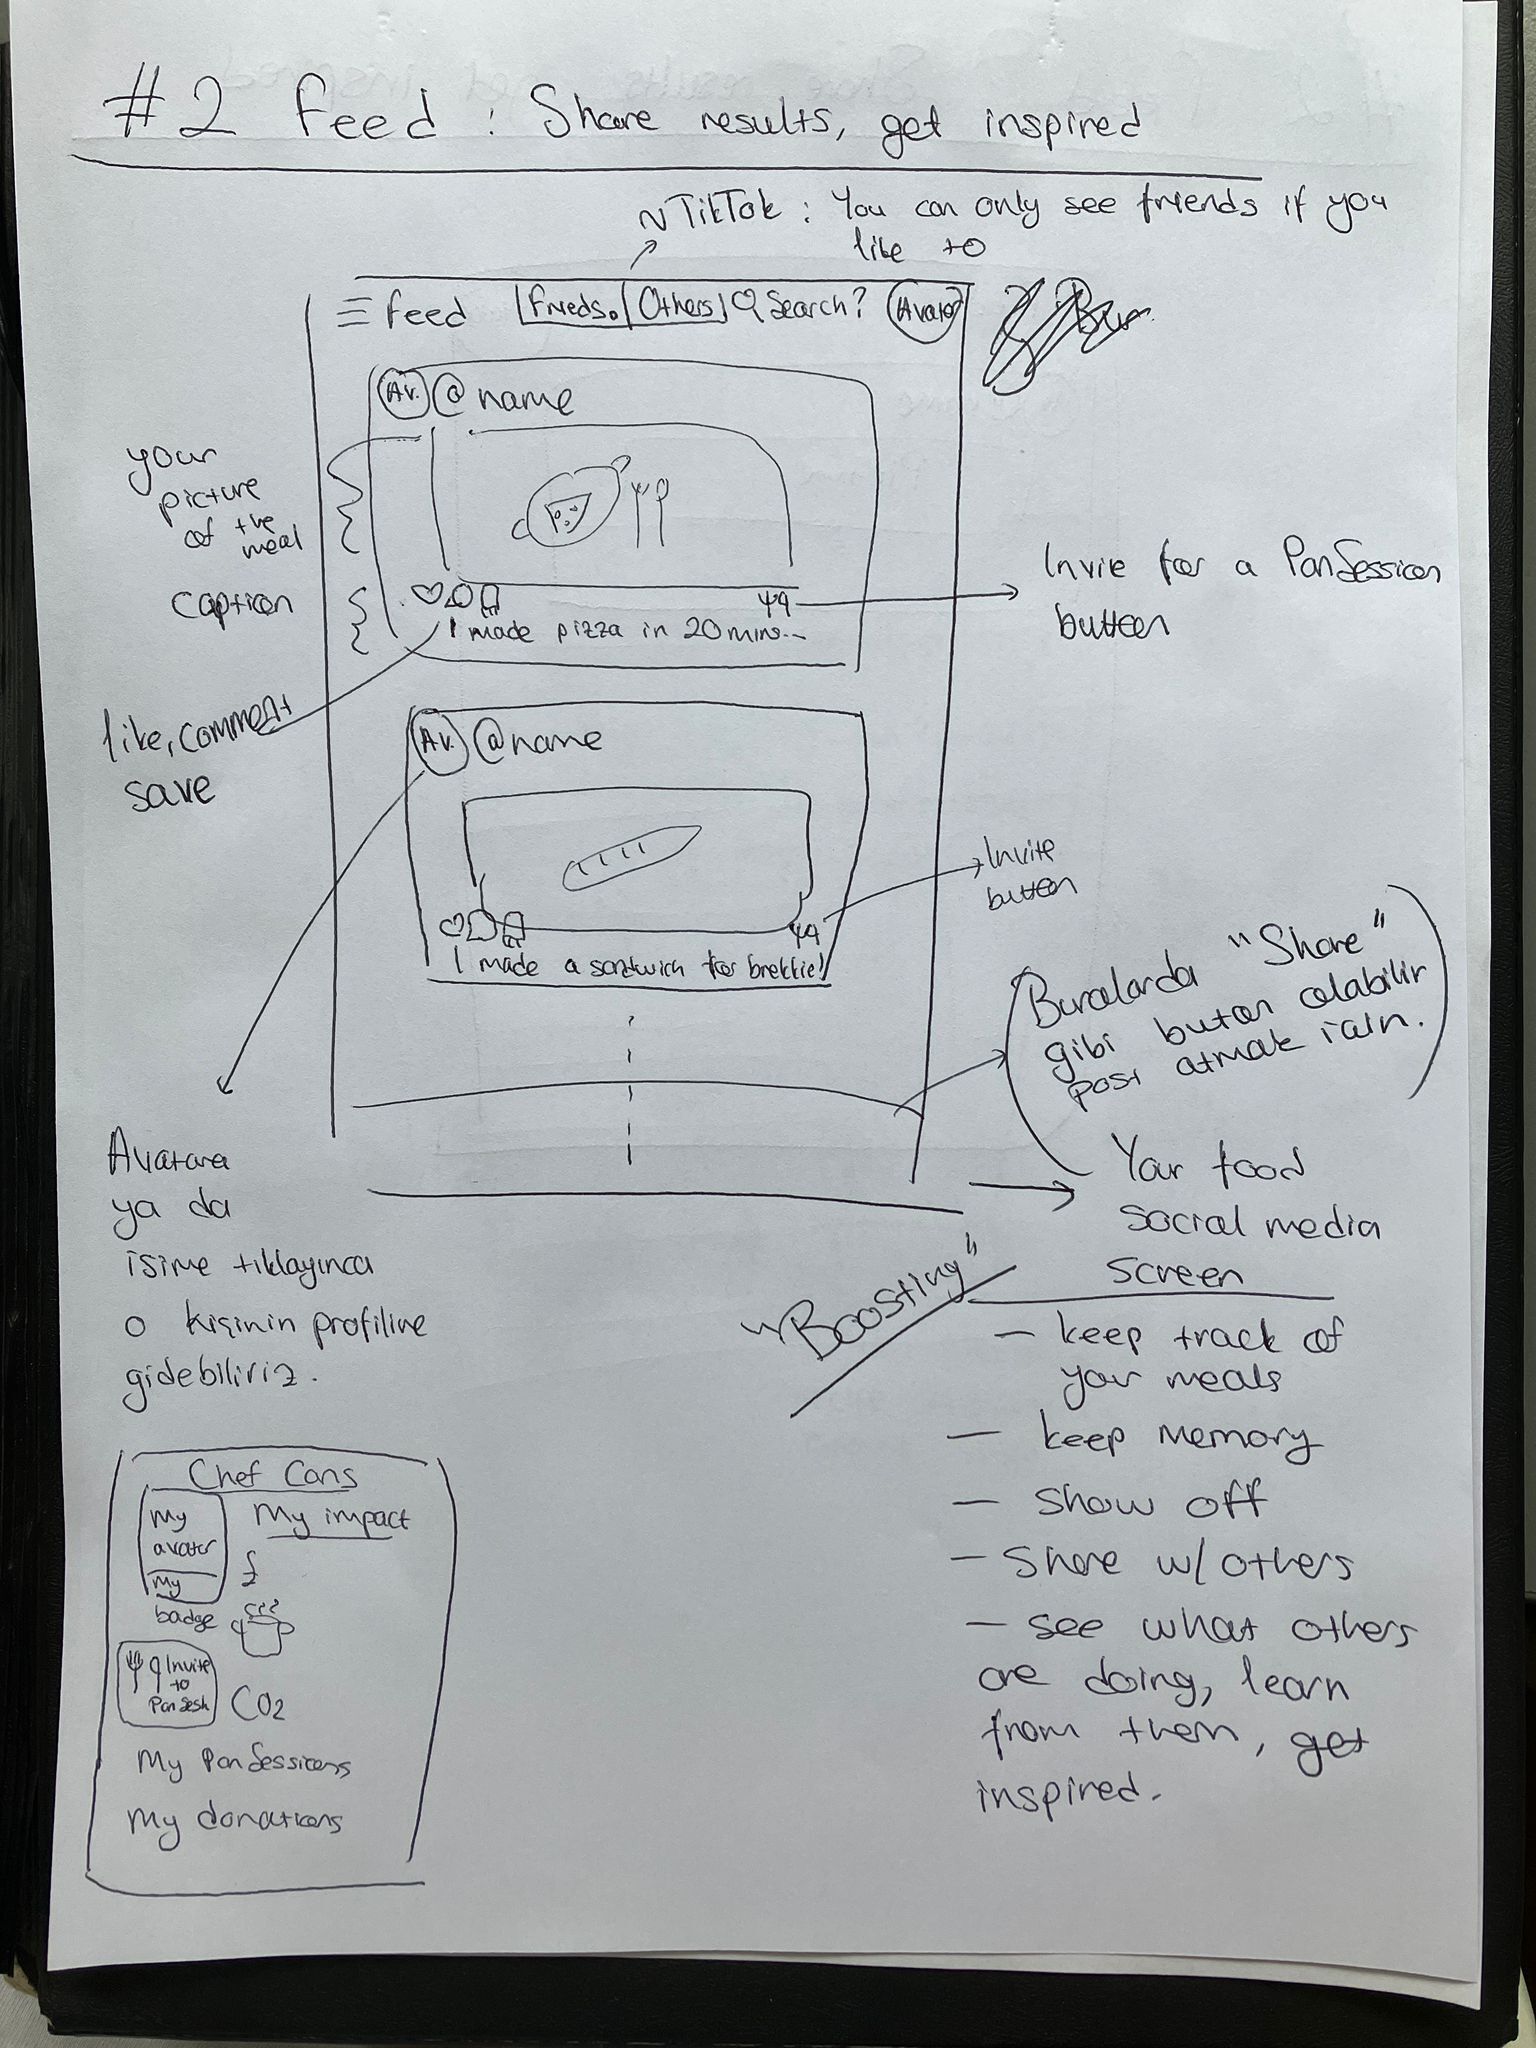 #2 Feed : Share results, get inspired
~TikTok : You can only see friends if you
like to
Feed
Frieds.
Others
Search?
Avatar
Av.
@name
your
picture
of the
meal
caption
I made pizza in 20 mins...
Invie for a PanSession
button
like, comment
save
Av.
@name
I made a sandwich for brekkie!
Invite
button
Buralarda "Share"
gibi buton olabilir
post atmak için.
Avatara
ya da
isime tıklayınca
o kişinin profiline
gidebiliriz.
Your food
social media
screen
"Boosting"
— keep track of
your meals
— keep memory
— show off
— share w/ others
— see what others
are doing, learn
from them, get
inspired.
Chef Cans
My
avatar
My
badge
My impact
£
Invite
to
PanSesh
CO2
My PanSessions
My donations